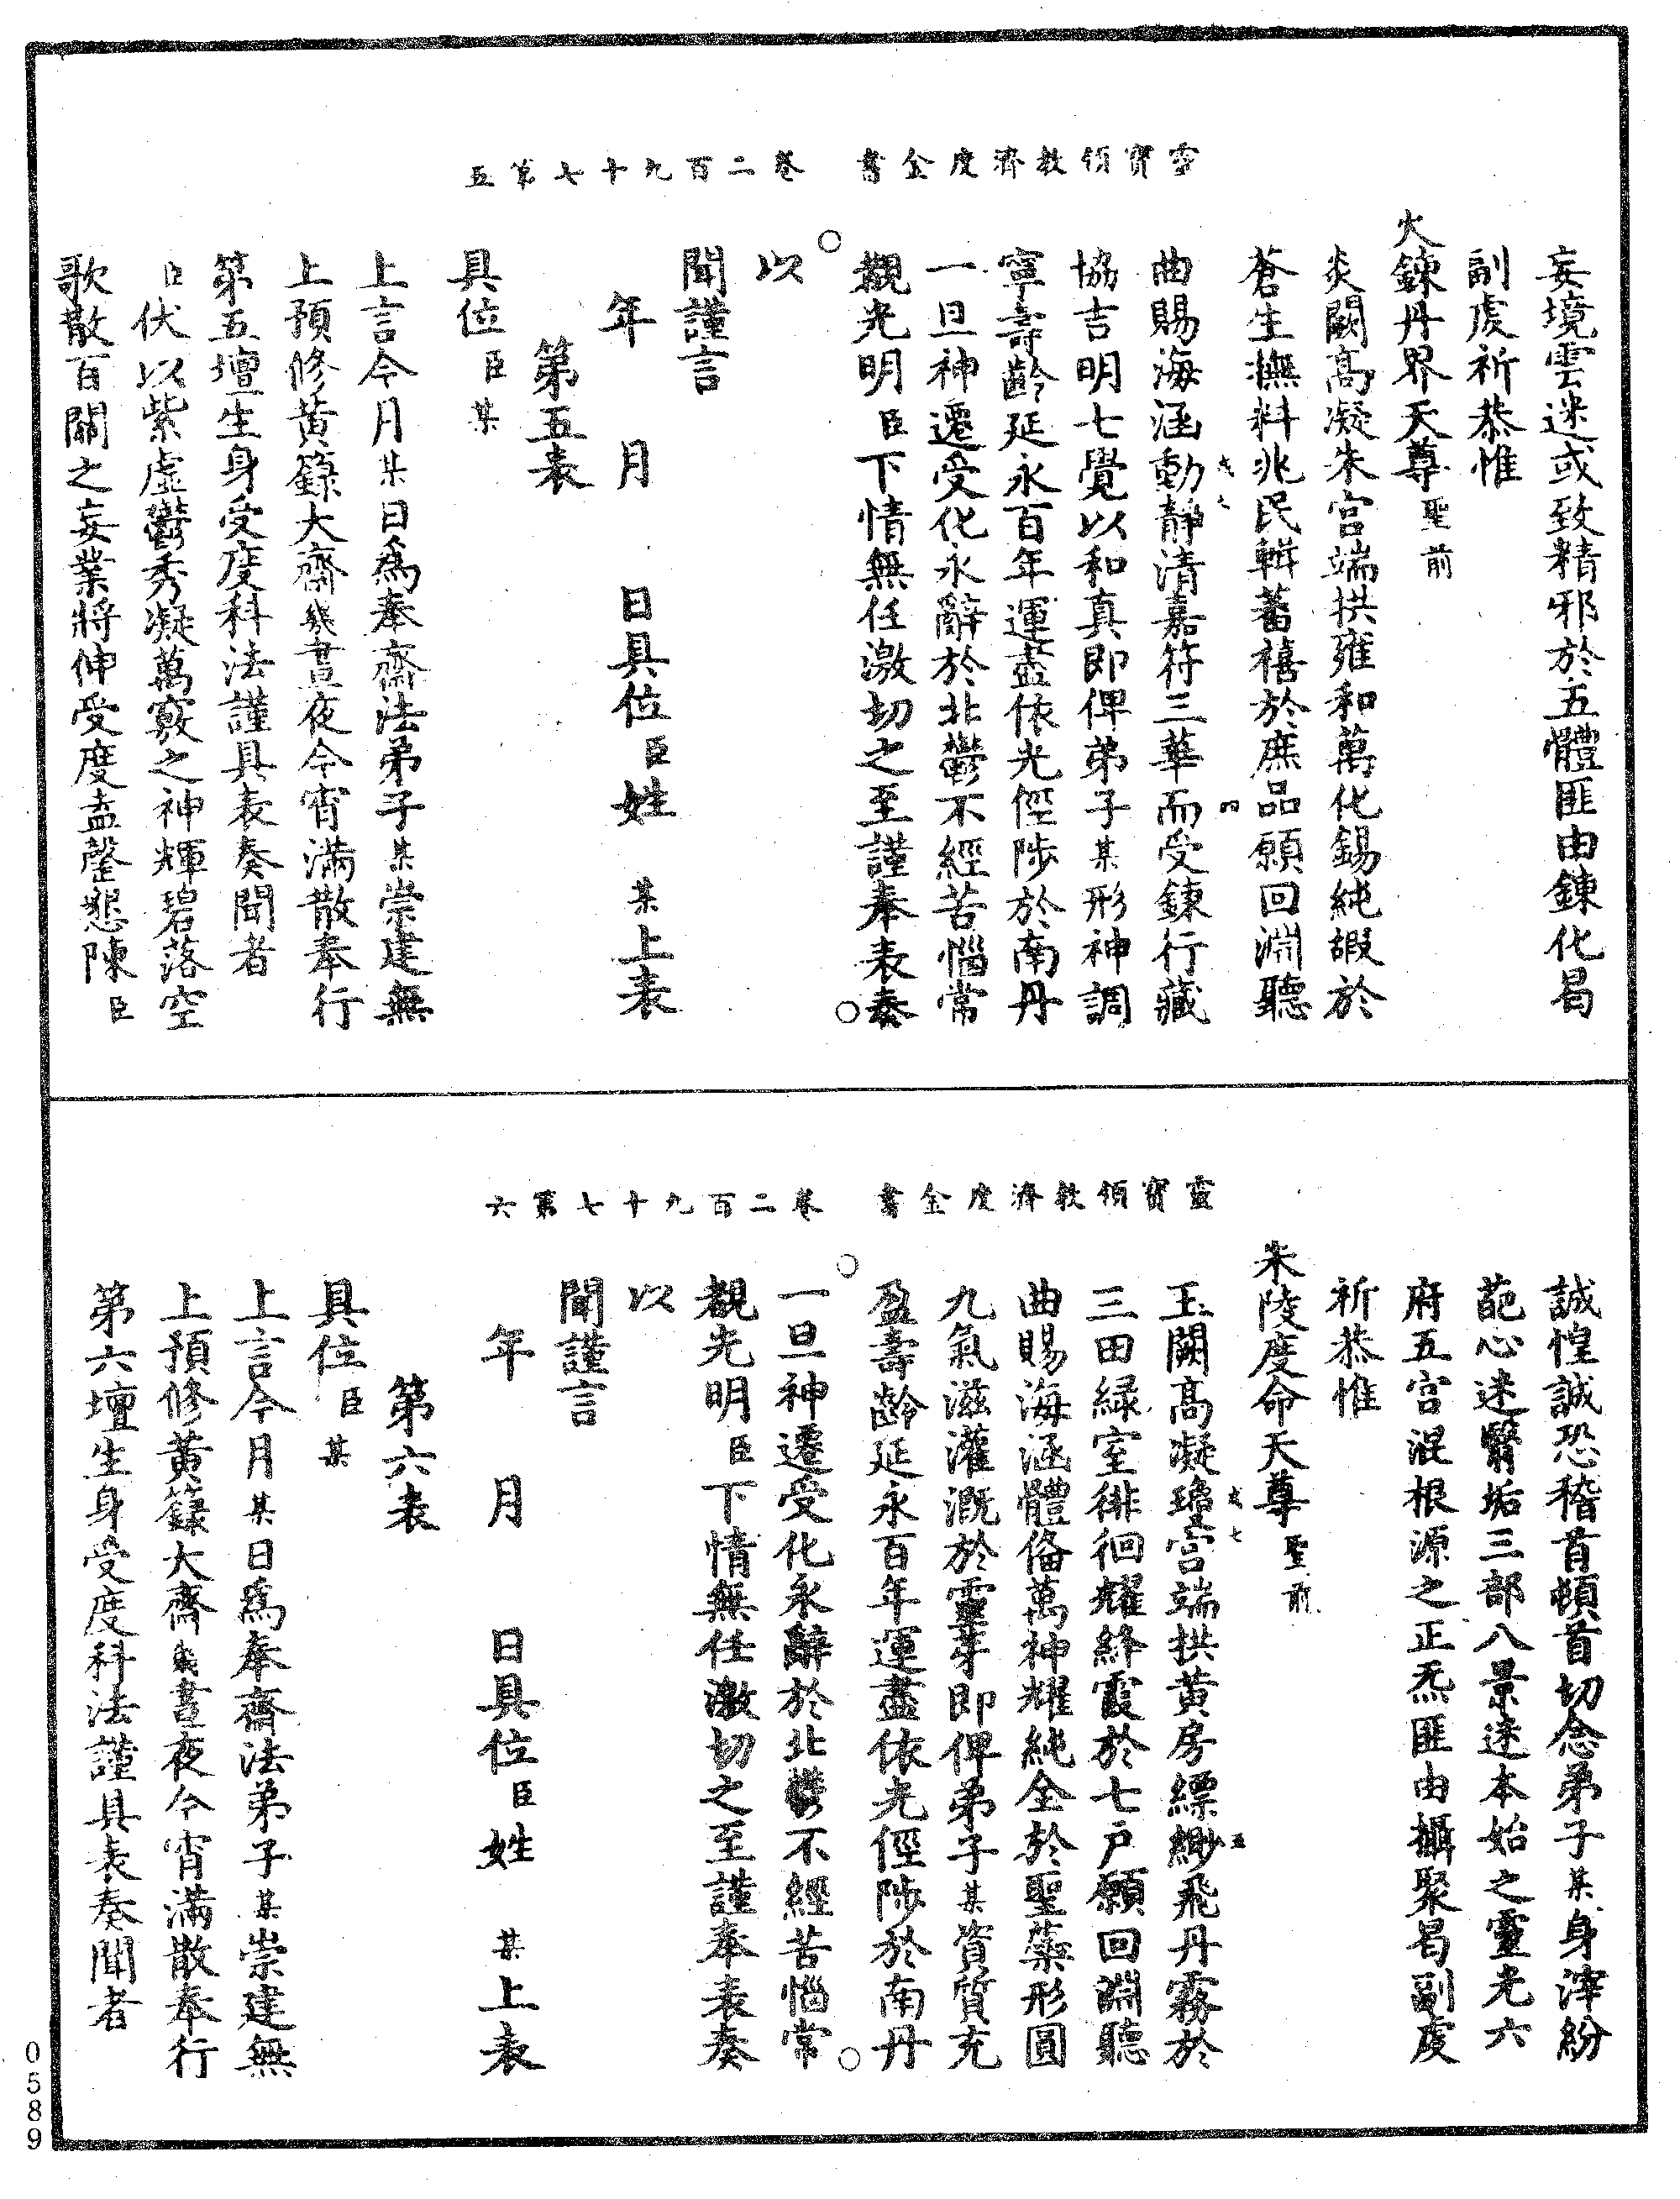 靈寶領教濟度金書　卷二百九十七第五
妄境雲迷或致精邪於五體匪由鍊化曷
副虔祈恭惟
火鍊丹界天尊聖前
炎闕高凝朱宮端拱雍和萬化錫純嘏於
蒼生撫料兆民輯蕃禧於庶品願回淵聽
曲賜海涵動靜清嘉符三華而受鍊行藏
協吉明七覺以和真即俾弟子某形神調
寧壽齡延永百年運盡依光徑陟於南丹
一旦神遷受化永辭於北鬱不經苦惱常
覩光明臣下情無任激切之至謹奉表奏
以
聞謹言
年　月　日具位臣姓　某上表
第五表
具位臣某
上言今月某日為奉齋法弟子某崇建無
上預修黃籙大齋幾晝夜今宵滿散奉行
第五壇生身受度科法謹具表奏聞者
臣伏以紫虛鬱秀凝萬竅之神輝碧落空
歌散百關之妄業將伸受度盍罄懇陳臣
靈寶領教濟度金書　卷二百九十七第六
誠惶誠恐稽首頓首切念弟子某身滓紛
葩心迷翳垢三部八景迷本始之靈光六
府五宮混根源之正炁匪由攝聚曷副虔
祈恭惟
朱陵度命天尊聖前
玉闕高凝瓊宮端拱黃房縹緲飛丹霧於
三田綠室徘徊耀絳霞於七戶願回淵聽
曲賜海涵體俻萬神耀純全於聖藥形圓
九氣滋灌溉於靈芽即俾弟子某資質充
盈壽齡延永百年運盡依光徑陟於南丹
一旦神遷受化永辭於北鬱不經苦惱常
覩光明臣下情無任激切之至謹奉表奏
以
聞謹言
年　月　日具位臣姓　某上表
第六表
具位臣某
上言今月某日為奉齋法弟子某崇建無
上預修黃籙大齋幾晝夜今宵滿散奉行
第六壇生身受度科法謹具表奏聞者
0589